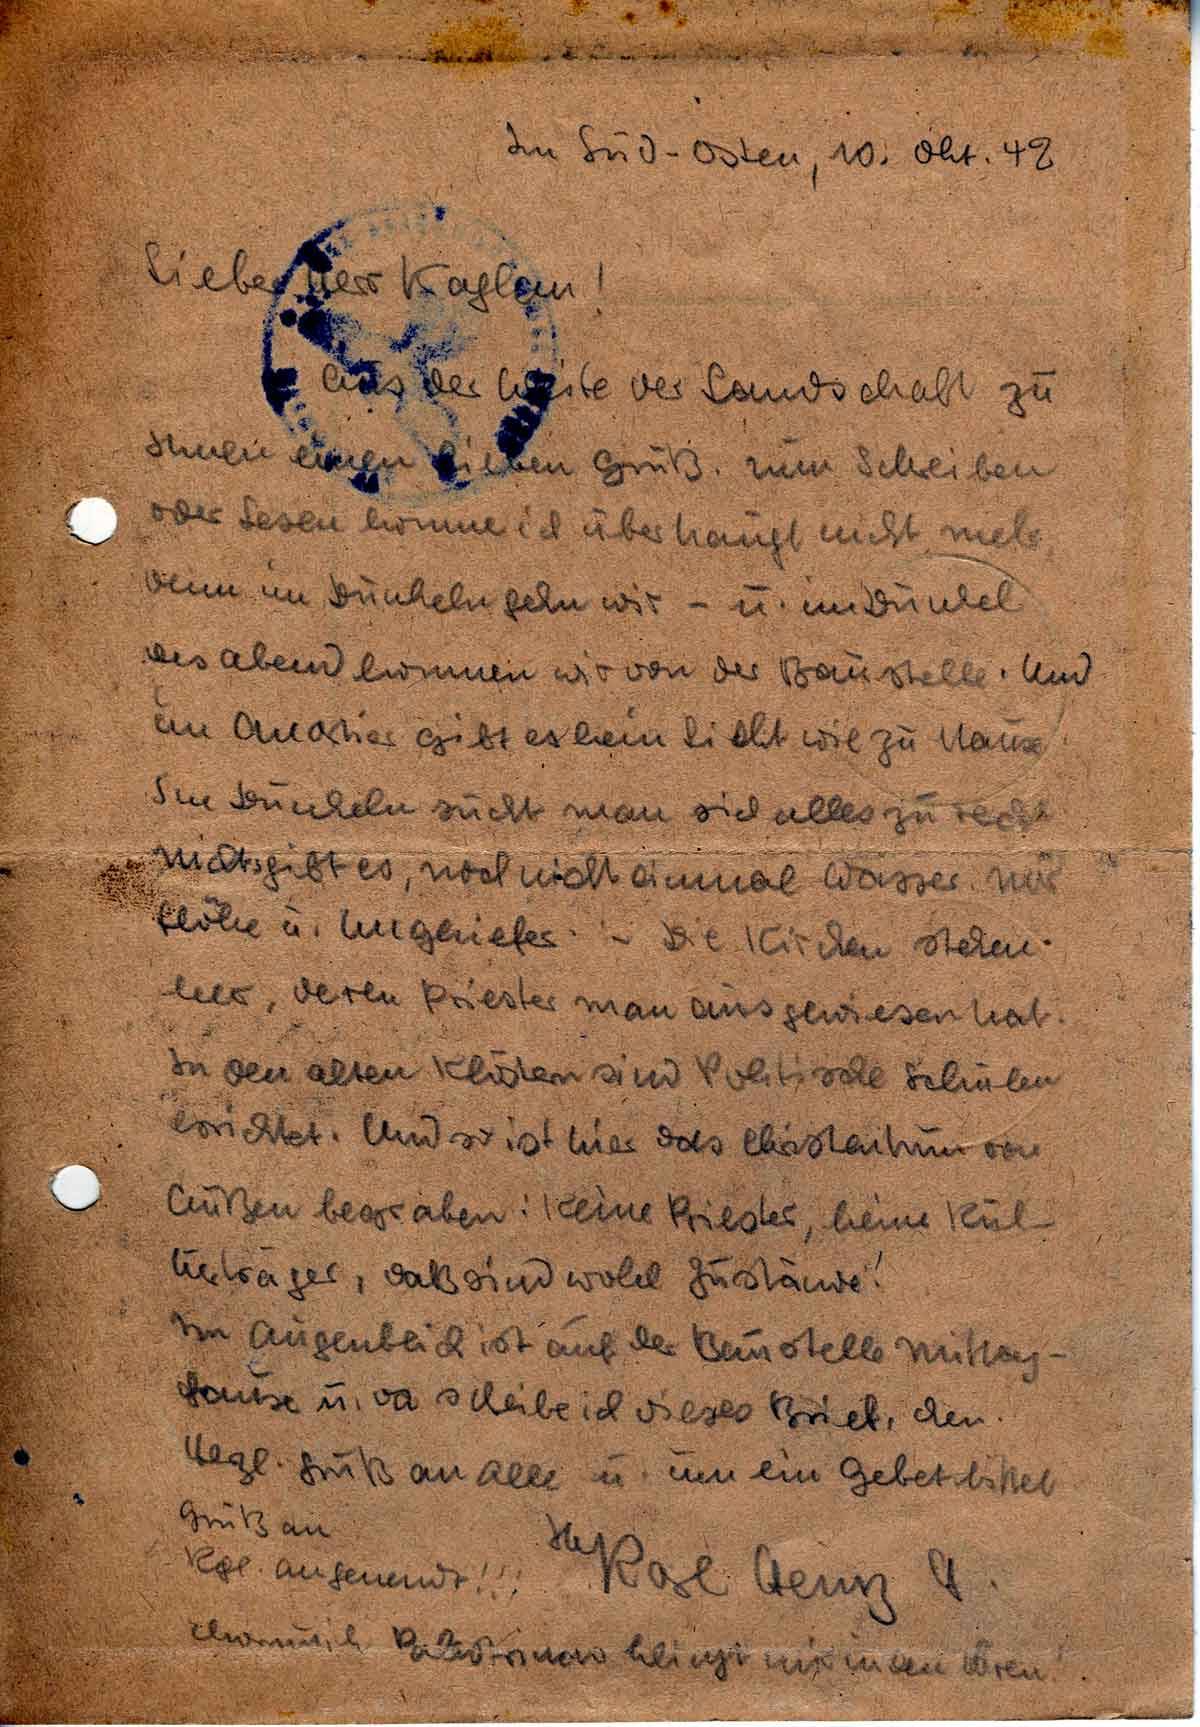 Im Süd-Osten, 10. Okt. 42
Lieber Herr Kaplan!
Aus der Weite der Landschaft zu
Ihnen einen lieben Gruß. Zum Schreiben
oder Lesen komme ich überhaupt nicht mehr,
denn im Dunkeln gehn wir – u. im Dunkel
des abend kommen wir von der Baustelle. Und
im Quartier gibt es kein Licht wie zu Hause.
Im Dunkeln sucht man sich alles zu recht
nichts gibt es, noch nicht einmal Wasser. nur
Flöhe u. Ungeziefer. – Die Kirchen stehen
leer, deren Priester man ausgewiesen hat.
In den alten Klöstern sind Politische Schulen
errichtet. Und so ist hier das Christentum von
Außen begraben: Keine Priester, keine Kul-
turträger, daß sind wohl Zustände!
Im Augenblick ist auf der Baustelle Mittag-
pause u. da schreibe ich diesen Brief.
Herzl. Gruß an alle u. um ein Gebet bittet
Gruß an
Ihr Karl Heinz
Kpl. Angenendt!!!
klingt mir in den Ohren!